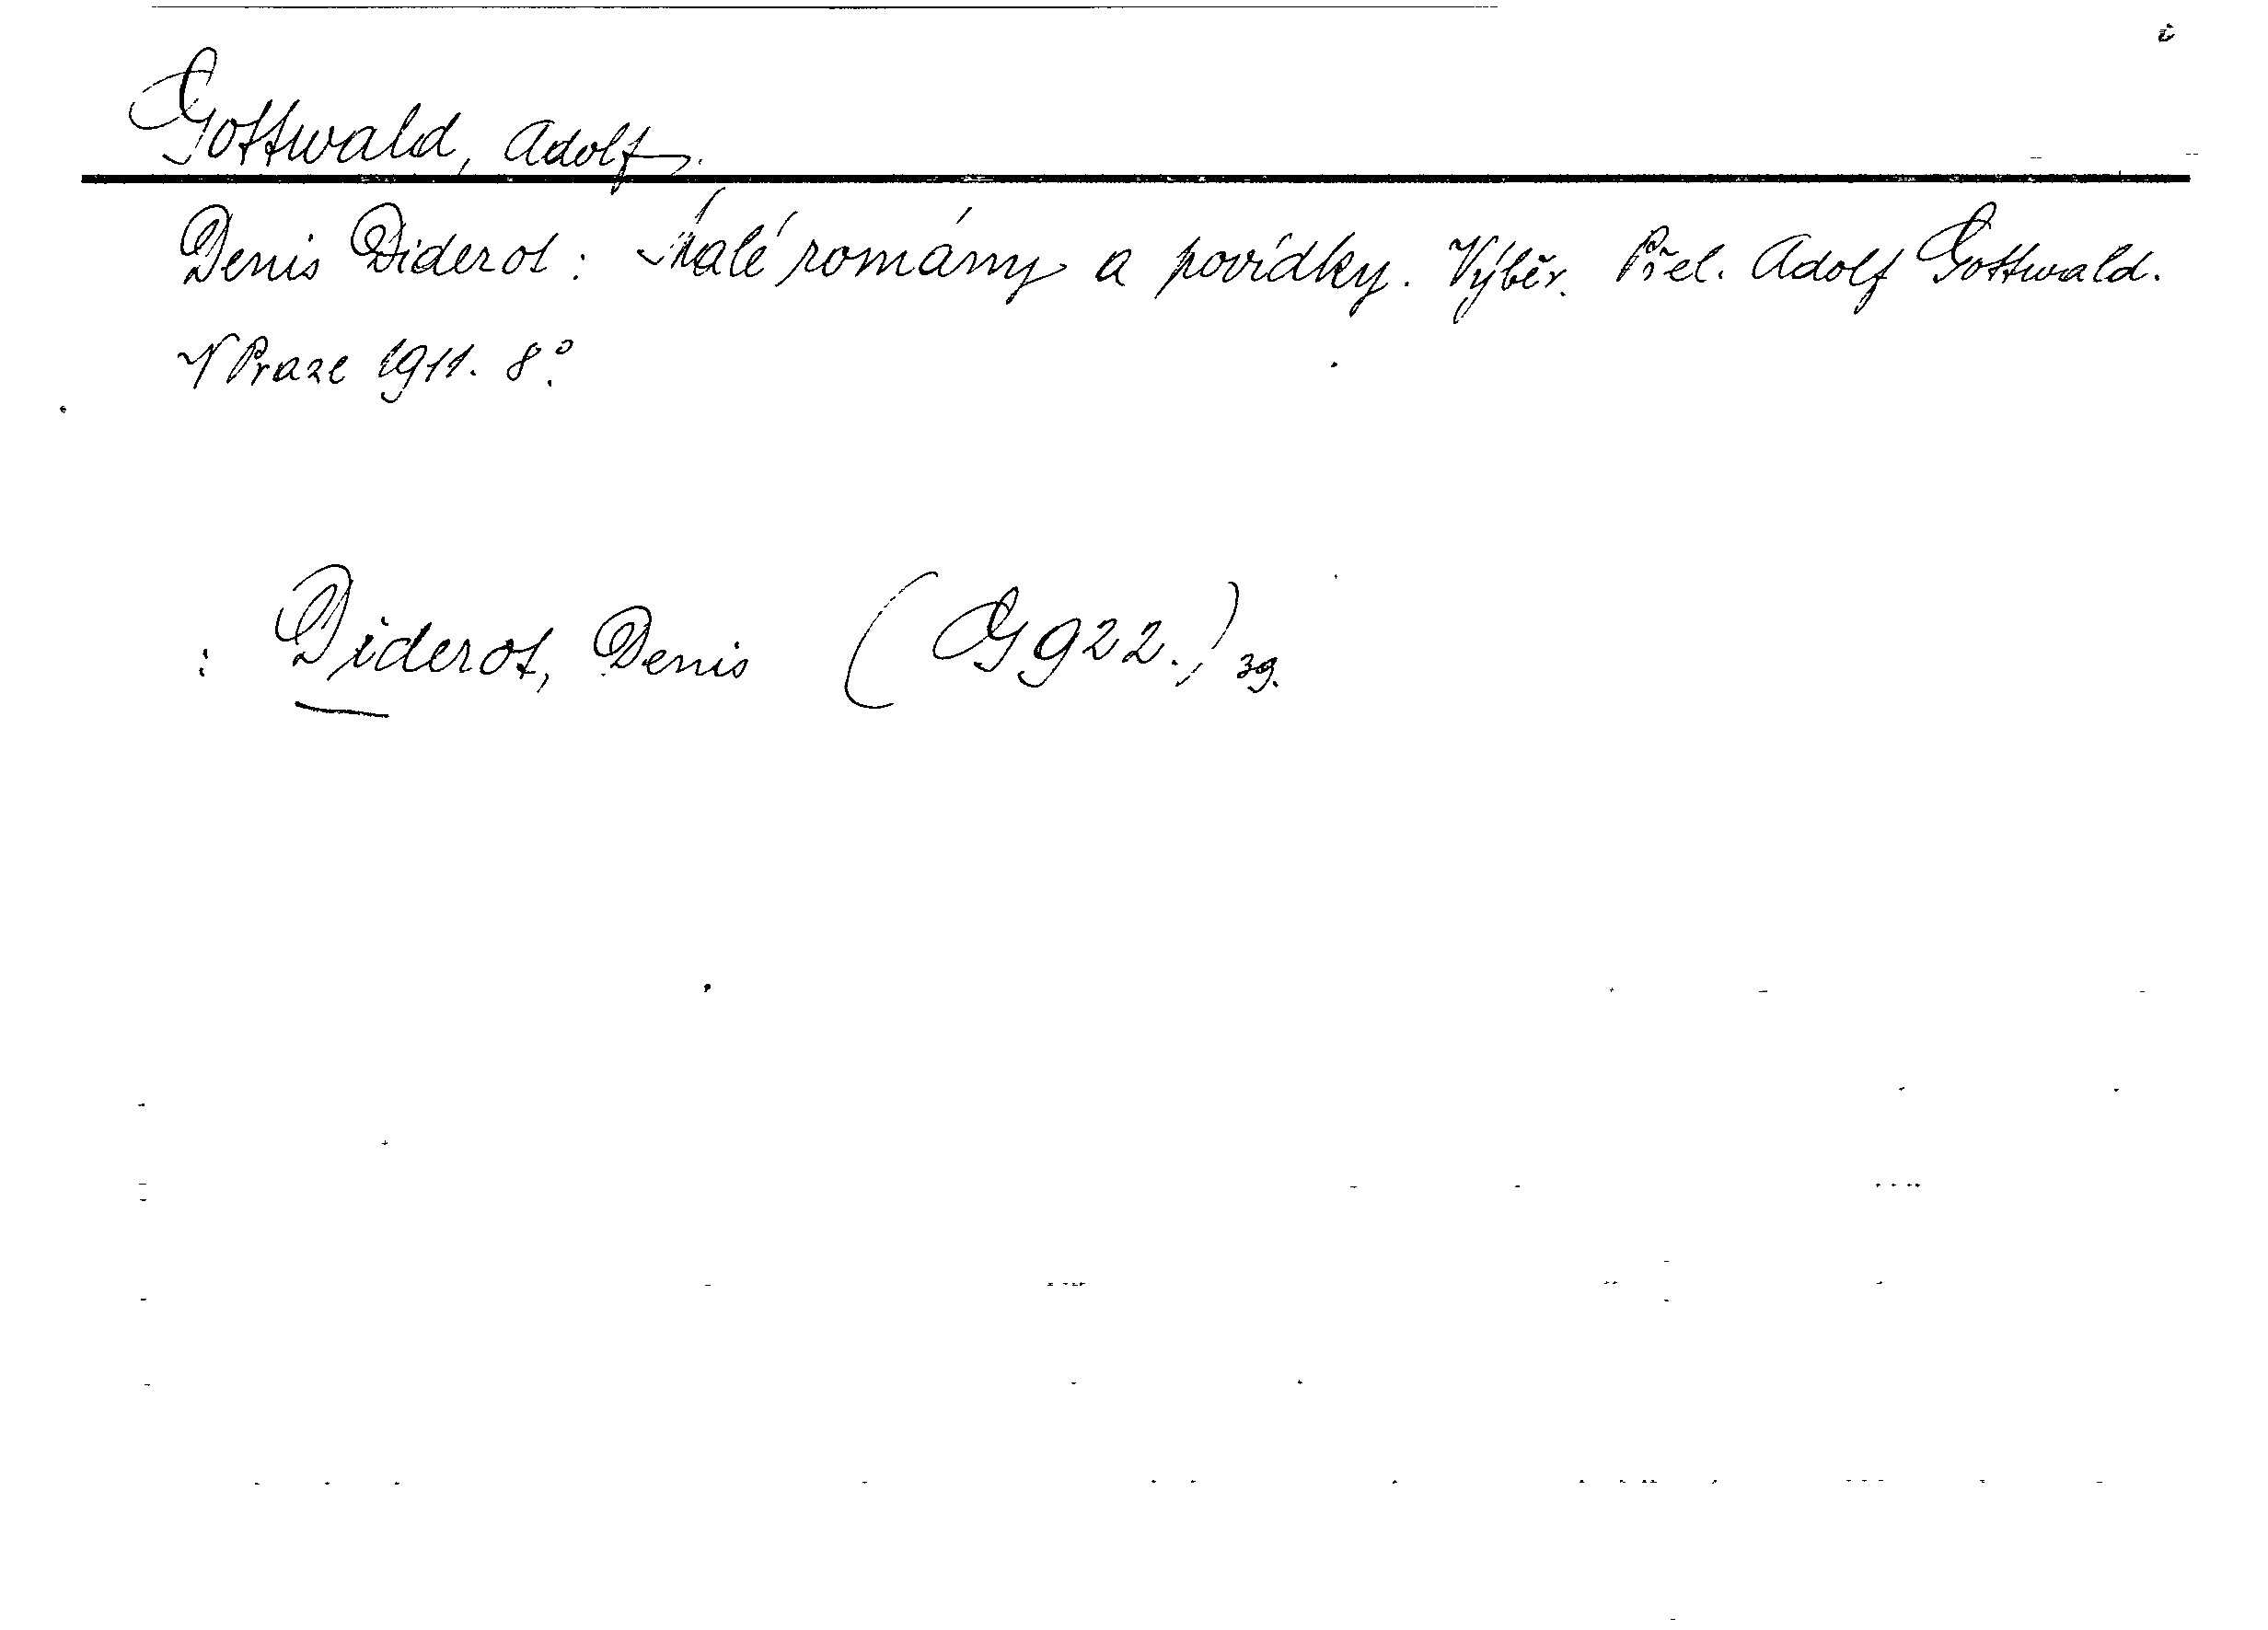 Gottwald, Adolf.
Denis Diderot: Malé romány a povídky. Výběr. Přel. Adolf Gottwald.
V Praze 1911. 8°.
: Diderot, Denis (G 922.) 39.